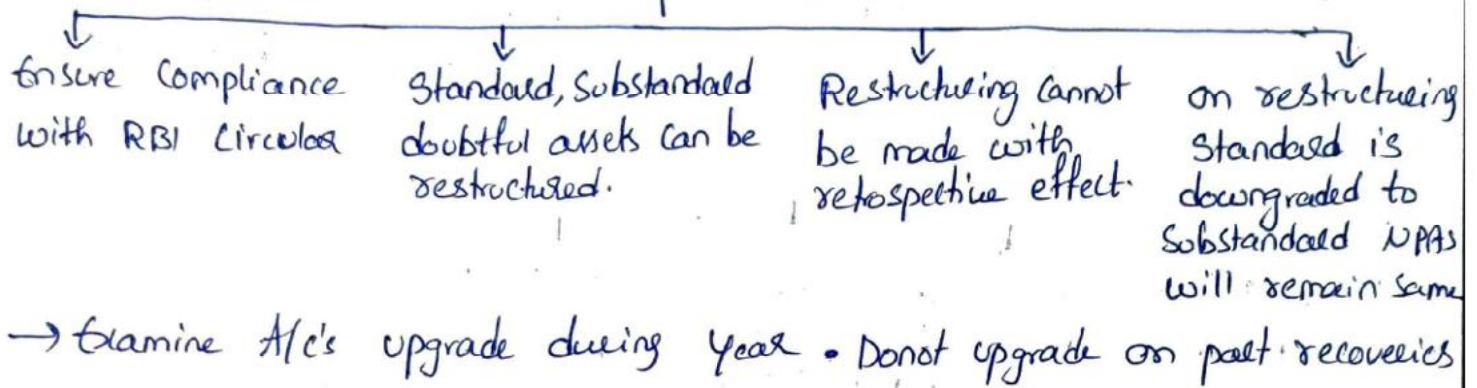 Ensure Compliance
with RBI Circular
Standard, Substandard
doubtful assets can be
restructured.
Restructuring cannot
be made with
retospective effect.
on restructuring
Standard is
downgraded to
Substandard NPAs
will remain same
→ Examine A/c's upgrade during year . Donot upgrade on part recoveries